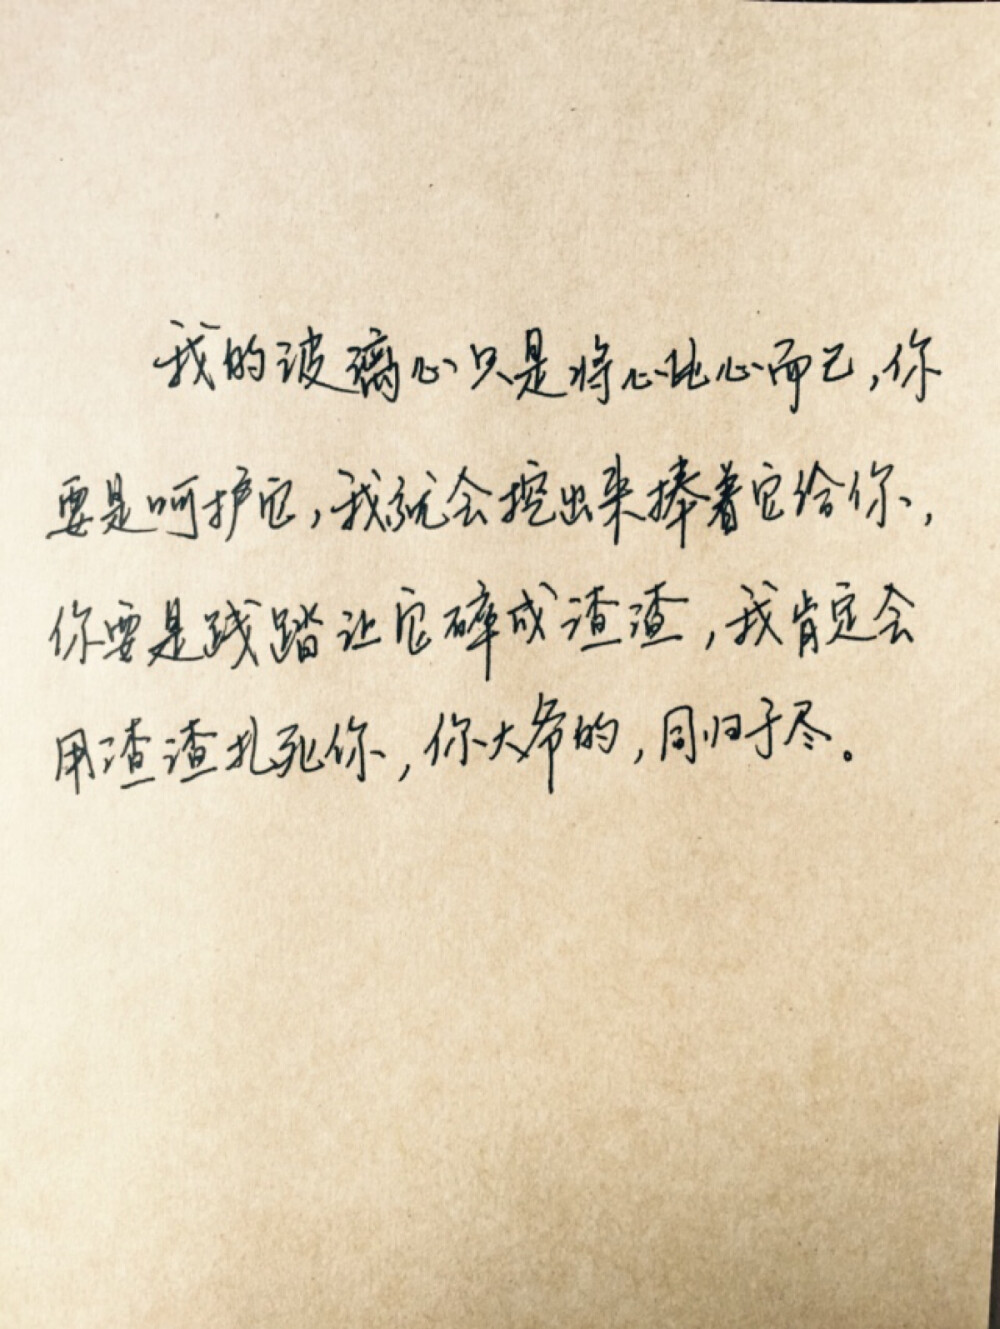 我的玻璃心只是将心比心而已,你
要是呵护它,我就会挖出来捧着它给你,
你要是践踏让它碎成渣渣,我肯定会
用渣渣扎死你,你大爷的,同归于尽。